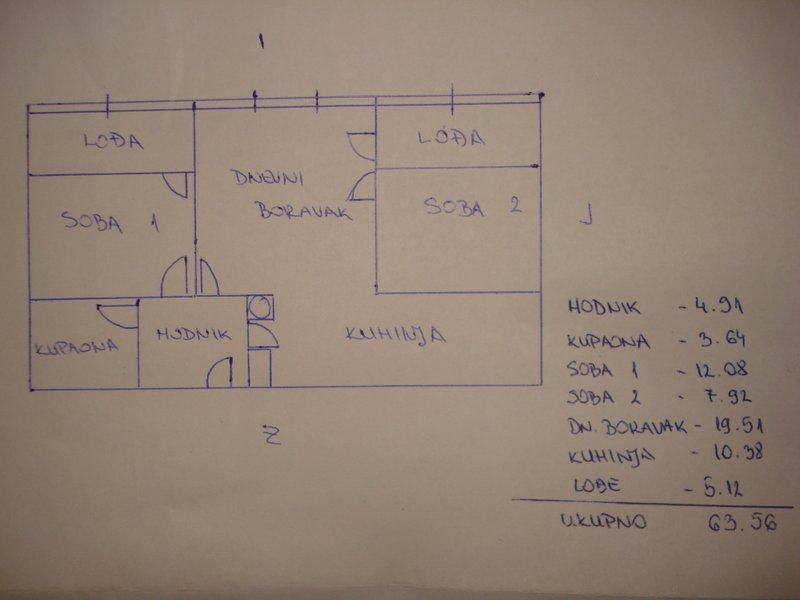 I
LOĐA
LOĐA
DNEVNI
BORAVAK
SOBA 1
SOBA 2
J
KUPAONA
HODNIK
KUHINJA
Z
HODNIK - 4.91
KUPAONA - 3.64
SOBA 1 - 12.08
SOBA 2 - 7.92
DN. BORAVAK - 19.51
KUHINJA - 10.38
LOĐE - 5.12
UKUPNO 63.56